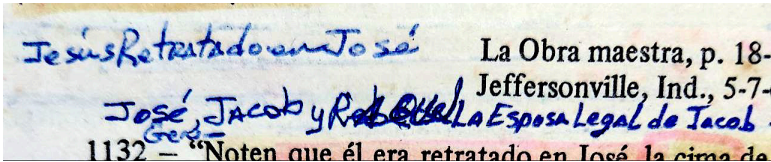 Jesús Retratado en José
La Obra maestra, p. 18-
Jeffersonville, Ind., 5-7-
José, Jacob y La Esposa Legal de Jacob
Gen-
1132 – “Noten que él era retratado en José, la cima de